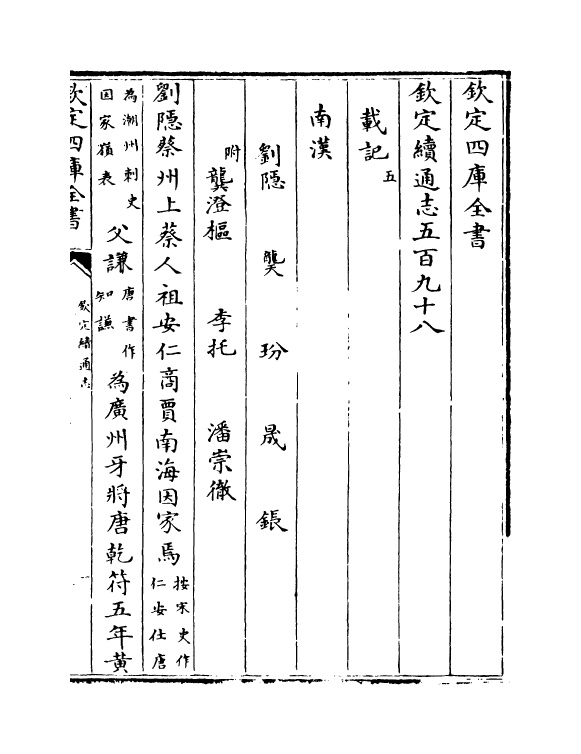 欽定四庫全書
欽定續通志五百九十八
載記五
南漢
劉隱 龑 玢 晟 鋹
附龔澄樞 李托 潘崇徹
劉隱蔡州上蔡人祖安仁商賈南海因家焉按宋史作仁安仕唐
為潮州刺史因家嶺表父謙唐書作知謙為廣州牙將唐乾符五年黃
欽定四庫全書
欽定續通志
一